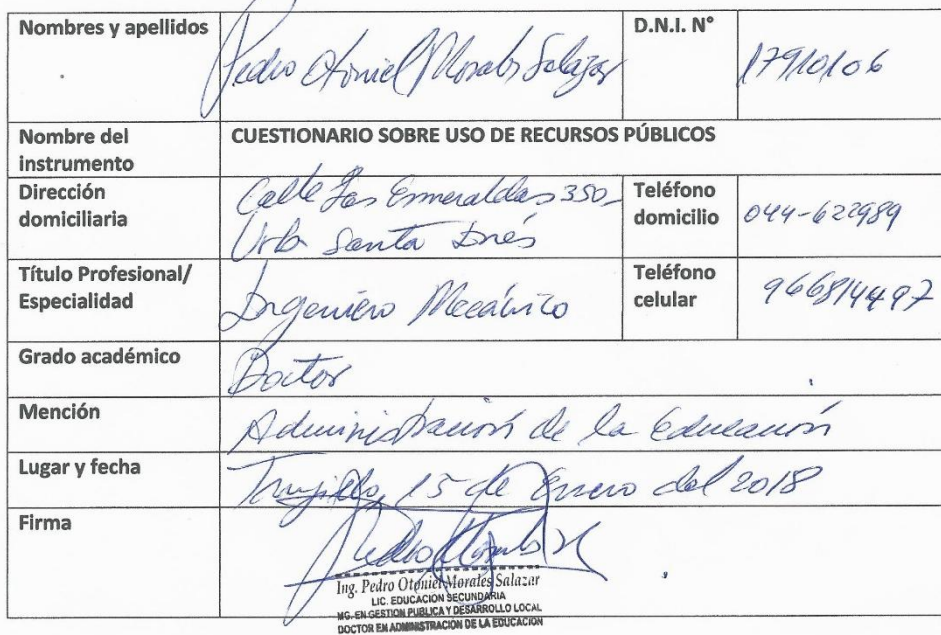 Nombres y apellidos Pedro Otoniel Morales Salazar D.N.I. N° 17910106
Nombre del instrumento CUESTIONARIO SOBRE USO DE RECURSOS PÚBLICOS
Dirección domiciliaria Calle Las Esmeraldas 350- Teléfono domicilio 044-622989
Urb Santa Inés
Título Profesional/ Especialidad Ingeniero Mecánico Teléfono celular 966814497
Grado académico Doctor
Mención Administración de la Educación
Lugar y fecha Trujillo, 15 de Enero del 2018
Firma
Ing. Pedro Otoniel Morales Salazar
LIC. EDUCACIÓN SECUNDARIA
MG. EN GESTION PUBLICA Y DESARROLLO LOCAL
DOCTOR EN ADMINISTRACIÓN DE LA EDUCACIÓN